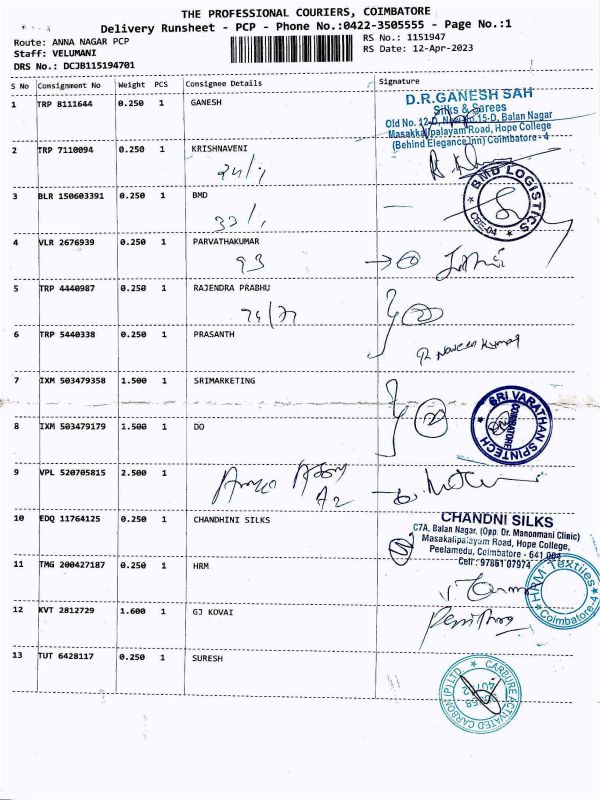 THE PROFESSIONAL COURIERS, COIMBATORE
Delivery Runsheet - PCP - Phone No.:0422-3505555 - Page No.:1
Route: ANNA NAGAR PCP
RS No.: 1151947
Staff: VELUMANI
RS Date: 12-Apr-2023
DRS No.: DCJB115194701
S No Consignment No Weight PCS Consignee Details Signature
1 TRP 8111644 0.250 1 GANESH
D.R.GANESH SAH
Silks & Sarees
Old No. 12-D, New No.15-D, Balan Nagar
Masakkalipalayam Road, Hope College
(Behind Elegance Inn) Coimbatore - 4
2 TRP 7110094 0.250 1 KRISHNAVENI
3 BLR 150603391 0.250 1 BMD
33/,
BMD LOGISTICS
CBE-04
4 VLR 2676939 0.250 1 PARVATHAKUMAR
93
5 TRP 4440987 0.250 1 RAJENDRA PRABHU
6 TRP 5440338 0.250 1 PRASANTH
Naveen Kumar
7 IXM 503479358 1.500 1 SRIMARKETING
8 IXM 503479179 1.500 1 DO
SRI VARATHAN SPINTECH
COIMBATORE
9 VPL 520705815 2.500 1
10 EDQ 11764125 0.250 1 CHANDHINI SILKS
CHANDNI SILKS
C7A, Balan Nagar, (Opp. Dr. Manonmani Clinic)
Masakalipalayam Road, Hope College,
Peelamedu, Coimbatore - 641 004
Cell : 97861 07974
11 TMG 200427187 0.250 1 HRM
HRM Textiles
Coimbatore-4
12 KVT 2812729 1.600 1 GJ KOVAI
13 TUT 6428117 0.250 1 SURESH
CARBURE ACTIVATED CARBON (P) LTD